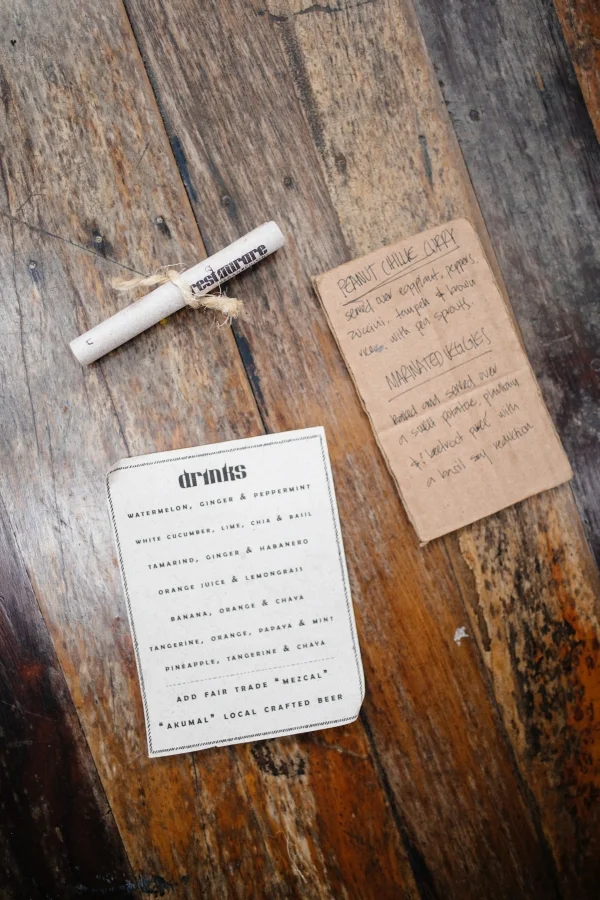 restaurare
PEANUT CHILLIE CURRY
served over eggplant, peppers,
zuccini, tempeh & brown
rice with pea sprouts
MARINATED VEGGIES
and served over
a sweet potatoe, plantain
& beetroot pureé with
a basil soy reduction
drinks
WATERMELON, GINGER & PEPPERMINT
WHITE CUCUMBER, LIME, CHIA & BASIL
TAMARIND, GINGER & HABANERO
ORANGE JUICE & LEMONGRASS
BANANA, ORANGE & CHAYA
TANGERINE, ORANGE, PAPAYA & MINT
PINEAPPLE, TANGERINE & CHAYA
ADD FAIR TRADE "MEZCAL"
"AKUMAL" LOCAL CRAFTED BEER